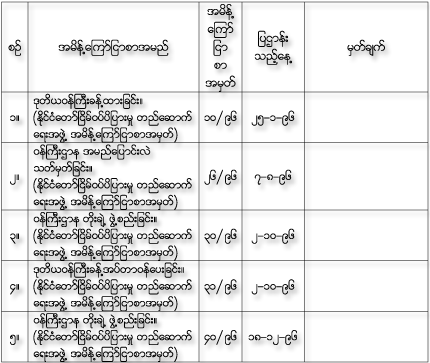 စဉ် အမိန့်ကြော်ငြာစာအမည် အမိန့်ကြော်ငြာစာအမှတ် ပြဌာန်းသည့်နေ့ မှတ်ချက်
၁။ ဒုတိယဝန်ကြီးခန့်ထားခြင်း။
(နိုင်ငံတော်ငြိမ်ဝပ်ပိပြားမှု တည်ဆောက်
ရေးအဖွဲ့ အမိန့်ကြော်ငြာစာအမှတ်) ၁၀/၉၆ ၂၅-၁-၉၆
ဝန်ကြီးဌာန အမည်ပြောင်းလဲ
သတ်မှတ်ခြင်း။
၂။ (နိုင်ငံတော်ငြိမ်ဝပ်ပိပြားမှု တည်ဆောက်
ရေးအဖွဲ့ အမိန့်ကြော်ငြာစာအမှတ်) ၂၆/၉၆ ၇-၈-၉၆
ဝန်ကြီးဌာန တိုးချဲ့ ဖွဲ့စည်းခြင်း။
၃။ (နိုင်ငံတော်ငြိမ်ဝပ်ပိပြားမှု တည်ဆောက်
ရေးအဖွဲ့ အမိန့်ကြော်ငြာစာအမှတ်) ၃၀/၉၆ ၂-၁၀-၉၆
ဒုတိယဝန်ကြီးခန့်အပ်တာဝန်ပေးခြင်း။
၄။ (နိုင်ငံတော်ငြိမ်ဝပ်ပိပြားမှု တည်ဆောက်
ရေးအဖွဲ့ အမိန့်ကြော်ငြာစာအမှတ်) ၃၁/၉၆ ၂-၁၀-၉၆
ဝန်ကြီးဌာန တိုးချဲ့ ဖွဲ့စည်းခြင်း။
၅။ (နိုင်ငံတော်ငြိမ်ဝပ်ပိပြားမှု တည်ဆောက်
ရေးအဖွဲ့ အမိန့်ကြော်ငြာစာအမှတ်) ၄၀/၉၆ ၁၈-၁၂-၉၆